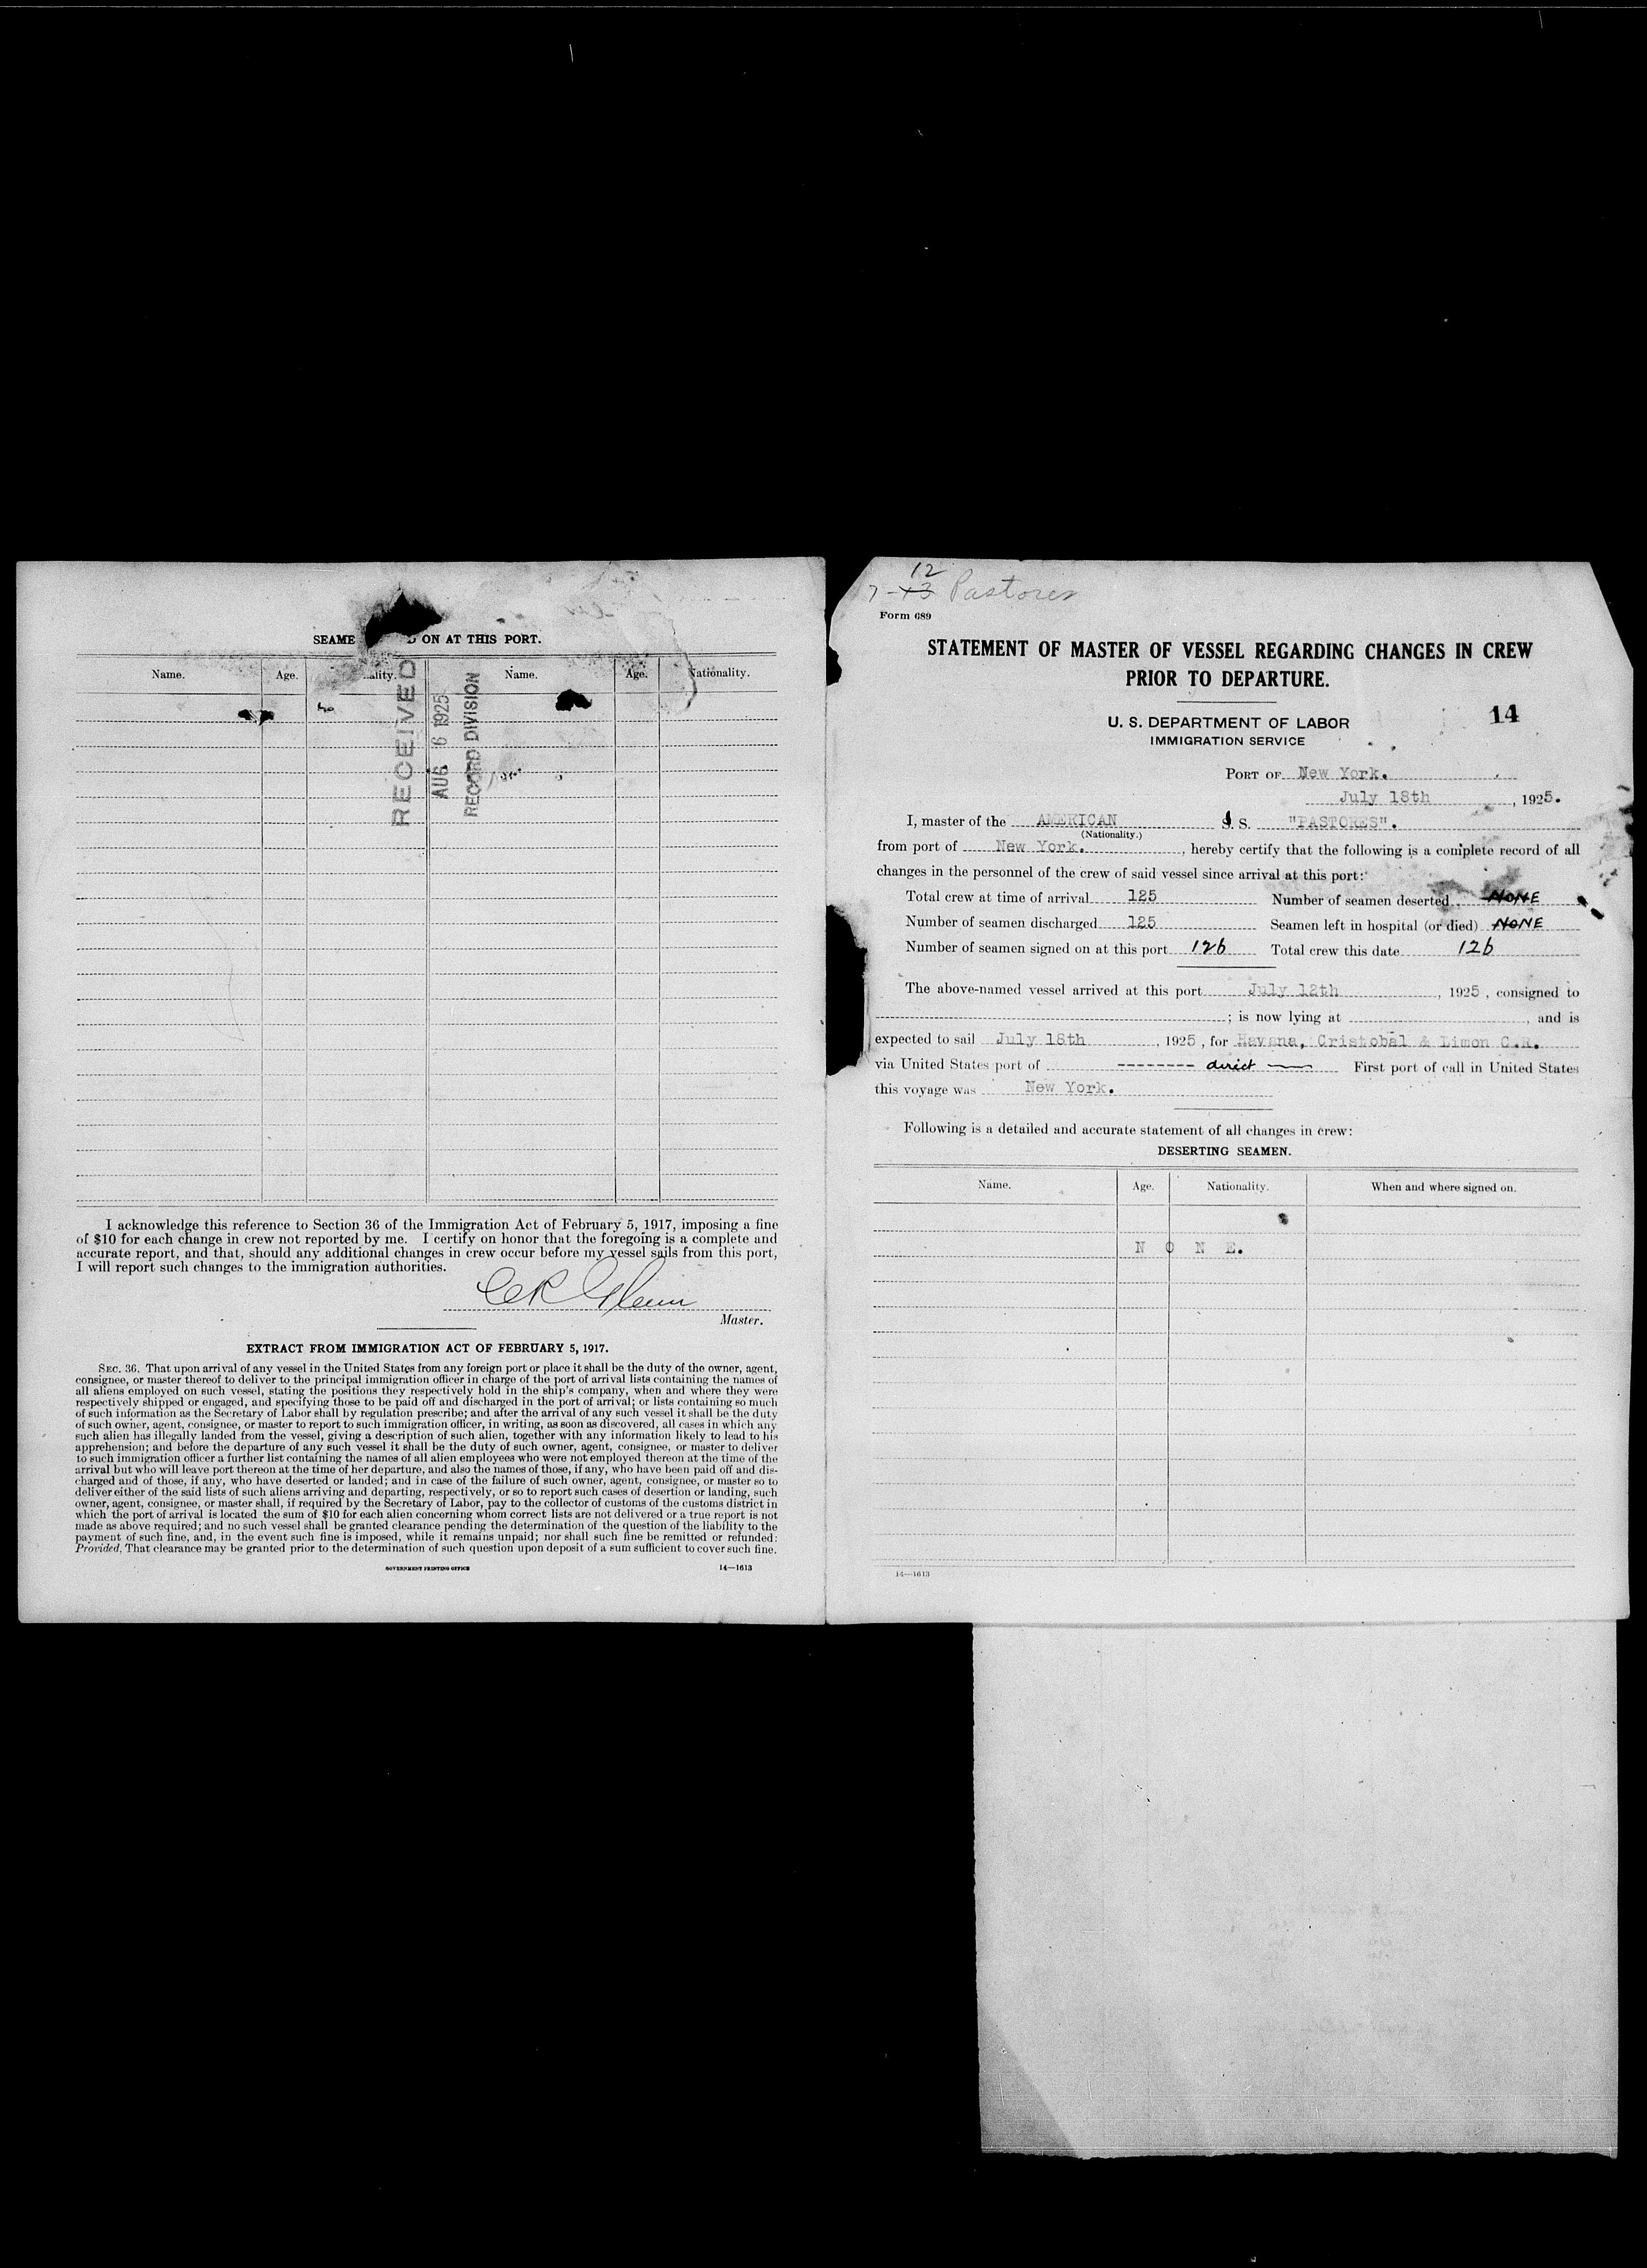 SEAME ON AT THIS PORT.
Name. Age. ality. Name. Age. Nationality.
RECEIVED
AUG 6 1925
RECORD DIVISION
I acknowledge this reference to Section 36 of the Immigration Act of February 5, 1917, imposing a fine
of $10 for each change in crew not reported by me. I certify on honor that the foregoing is a complete and
accurate report, and that, should any additional changes in crew occur before my vessel sails from this port,
I will report such changes to the immigration authorities.
Glenn
Master.
EXTRACT FROM IMMIGRATION ACT OF FEBRUARY 5, 1917.
SEC. 36. That upon arrival of any vessel in the United States from any foreign port or place it shall be the duty of the owner, agent,
consignee, or master thereof to deliver to the principal immigration officer in charge of the port of arrival lists containing the names of
all aliens employed on such vessel, stating the positions they respectively hold in the ship's company, when and where they were
respectively shipped or engaged, and specifying those to be paid off and discharged in the port of arrival; or lists containing so much
of such information as the Secretary of Labor shall by regulation prescribe; and after the arrival of any such vessel it shall be the duty
of such owner, agent, consignee, or master to report to such immigration officer, in writing, as soon as discovered, all cases in which any
such alien has illegally landed from the vessel, giving a description of such alien, together with any information likely to lead to his
apprehension; and before the departure of any such vessel it shall be the duty of such owner, agent, consignee, or master to deliver
to such immigration officer a further list containing the names of all alien employees who were not employed thereon at the time of the
arrival but who will leave port thereon at the time of her departure, and also the names of those, if any, who have been paid off and dis-
charged and of those, if any, who have deserted or landed; and in case of the failure of such owner, agent, consignee, or master so to
deliver either of the said lists of such aliens arriving and departing, respectively, or so to report such cases of desertion or landing, such
owner, agent, consignee, or master shall, if required by the Secretary of Labor, pay to the collector of customs of the customs district in
which the port of arrival is located the sum of $10 for each alien concerning whom correct lists are not delivered or a true report is not
made as above required; and no such vessel shall be granted clearance pending the determination of the question of the liability to the
payment of such fine, and, in the event such fine is imposed, while it remains unpaid; nor shall such fine be remitted or refunded:
Provided, That clearance may be granted prior to the determination of such question upon deposit of a sum sufficient to cover such fine.
GOVERNMENT PRINTING OFFICE 14—1613
12
7-13 Pastores
Form 689
STATEMENT OF MASTER OF VESSEL REGARDING CHANGES IN CREW
PRIOR TO DEPARTURE.
U. S. DEPARTMENT OF LABOR 14
IMMIGRATION SERVICE
PORT OF New York.
July 18th, 1925.
I, master of the AMERICAN S. S. "PASTORES".
(Nationality.)
from port of New York., hereby certify that the following is a complete record of all
changes in the personnel of the crew of said vessel since arrival at this port:
Total crew at time of arrival 125 Number of seamen deserted NONE
Number of seamen discharged 125 Seamen left in hospital (or died) NONE
Number of seamen signed on at this port 126 Total crew this date 126
The above-named vessel arrived at this port July 12th, 1925, consigned to
; is now lying at , and is
expected to sail July 18th, 1925, for Havana, Cristobal & Limon C.R.
via United States port of -------- direct First port of call in United States
this voyage was New York.
Following is a detailed and accurate statement of all changes in crew:
DESERTING SEAMEN.
Name. Age. Nationality. When and where signed on.
N O N E.
14—1613